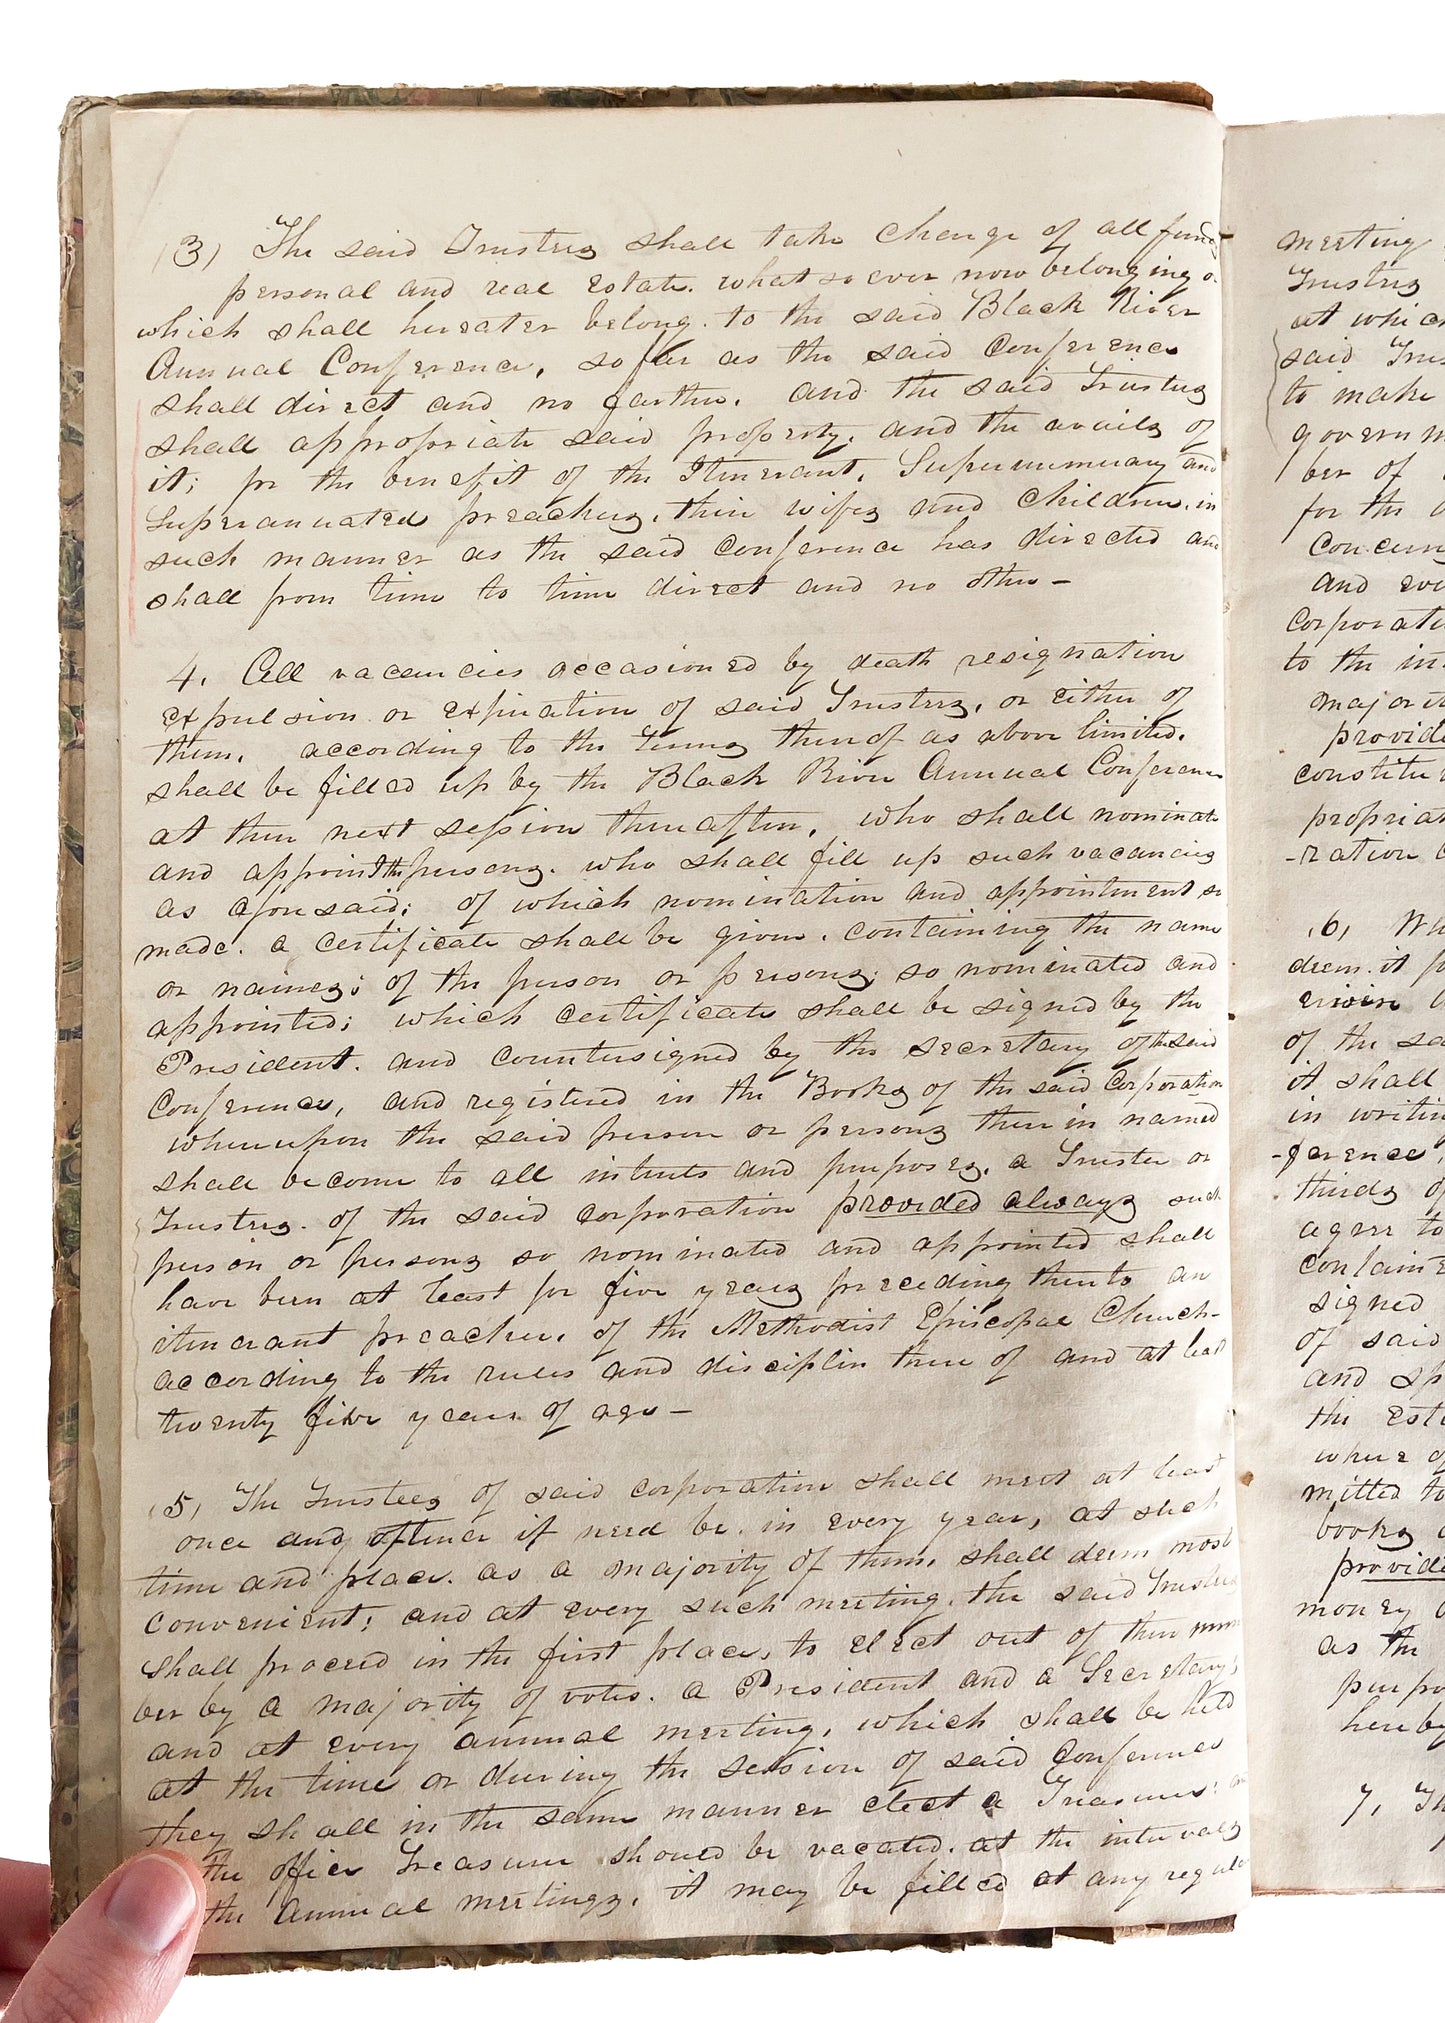 (3) The said Trustees shall take charge of all funds
personal and real estate. what so ever now belonging or
which shall hereater belong. to the said Black River
Annual Conference, so far as the said Conference
shall direct and no farther. and the said Trustees
shall appropriate said property. and the avails of
it; for the benefit of the Itinerant, Supernumerary and
Superanuated preachers, their wifes and Children. in
such manner as the said Conference has directed and
shall from time to time direct and no other -
4. All vacancies occasioned by death resignation
expulsion or expiration of said Trustees, or either of
them. according to the Terms there of as above limited.
shall be filled up by the Black River Annual Conference
at their next session thereafter, who shall nominate
and appoint the persons. who shall fill up such vacancies
as aforesaid; of which nomination and appointment so
made. a certificate shall be given. containing the name
or names; of the person or persons; so nominated and
appointed; which certificate shall be signed by the
President. and countersigned by the secretary of the said
Conference, and registered in the Books of the said Corporation
whereupon the said person or persons there in named
shall become to all intents and purposes, a Trustee or
Trustees. of the said corporation provided always such
person or persons so nominated and appointed shall
have been at least for five years preceeding thereto an
itinerant preacher. of the Methodist Episcopal Church-
according to the rules and disciplin there of and at least
twenty five years of age -
(5) The Trustees of said corporation shall meet at least
once and oftener if need be. in every year, at such
time and place. as a majority of them. shall deem most
convenient; and at every such meeting. the said Trustees
shall proceed in the first place, to elect out of their num
ber by a majority of votes. a President and a Secretary;
and at every annual meeting, which shall be held
at the time or during the session of said Conference
they shall in the same manner elect a Treasurer;
the office Treasurer should be vacated. at the intervals
the annual meetings. it may be filled at any regular
meeting
Trustees
at which
said
to make
govern
ber of
for the
Concern
and
Corporati
to the in
major
provide
constitu
propriat
-ration
(6) Wh
deem it
of the sa
it shall
in writin
-ference,
thirds of
agree to
contain
signed
of said
and sp
the est
where of
mitted to
books
provide
money
as the
purpo
hereby
7, Th